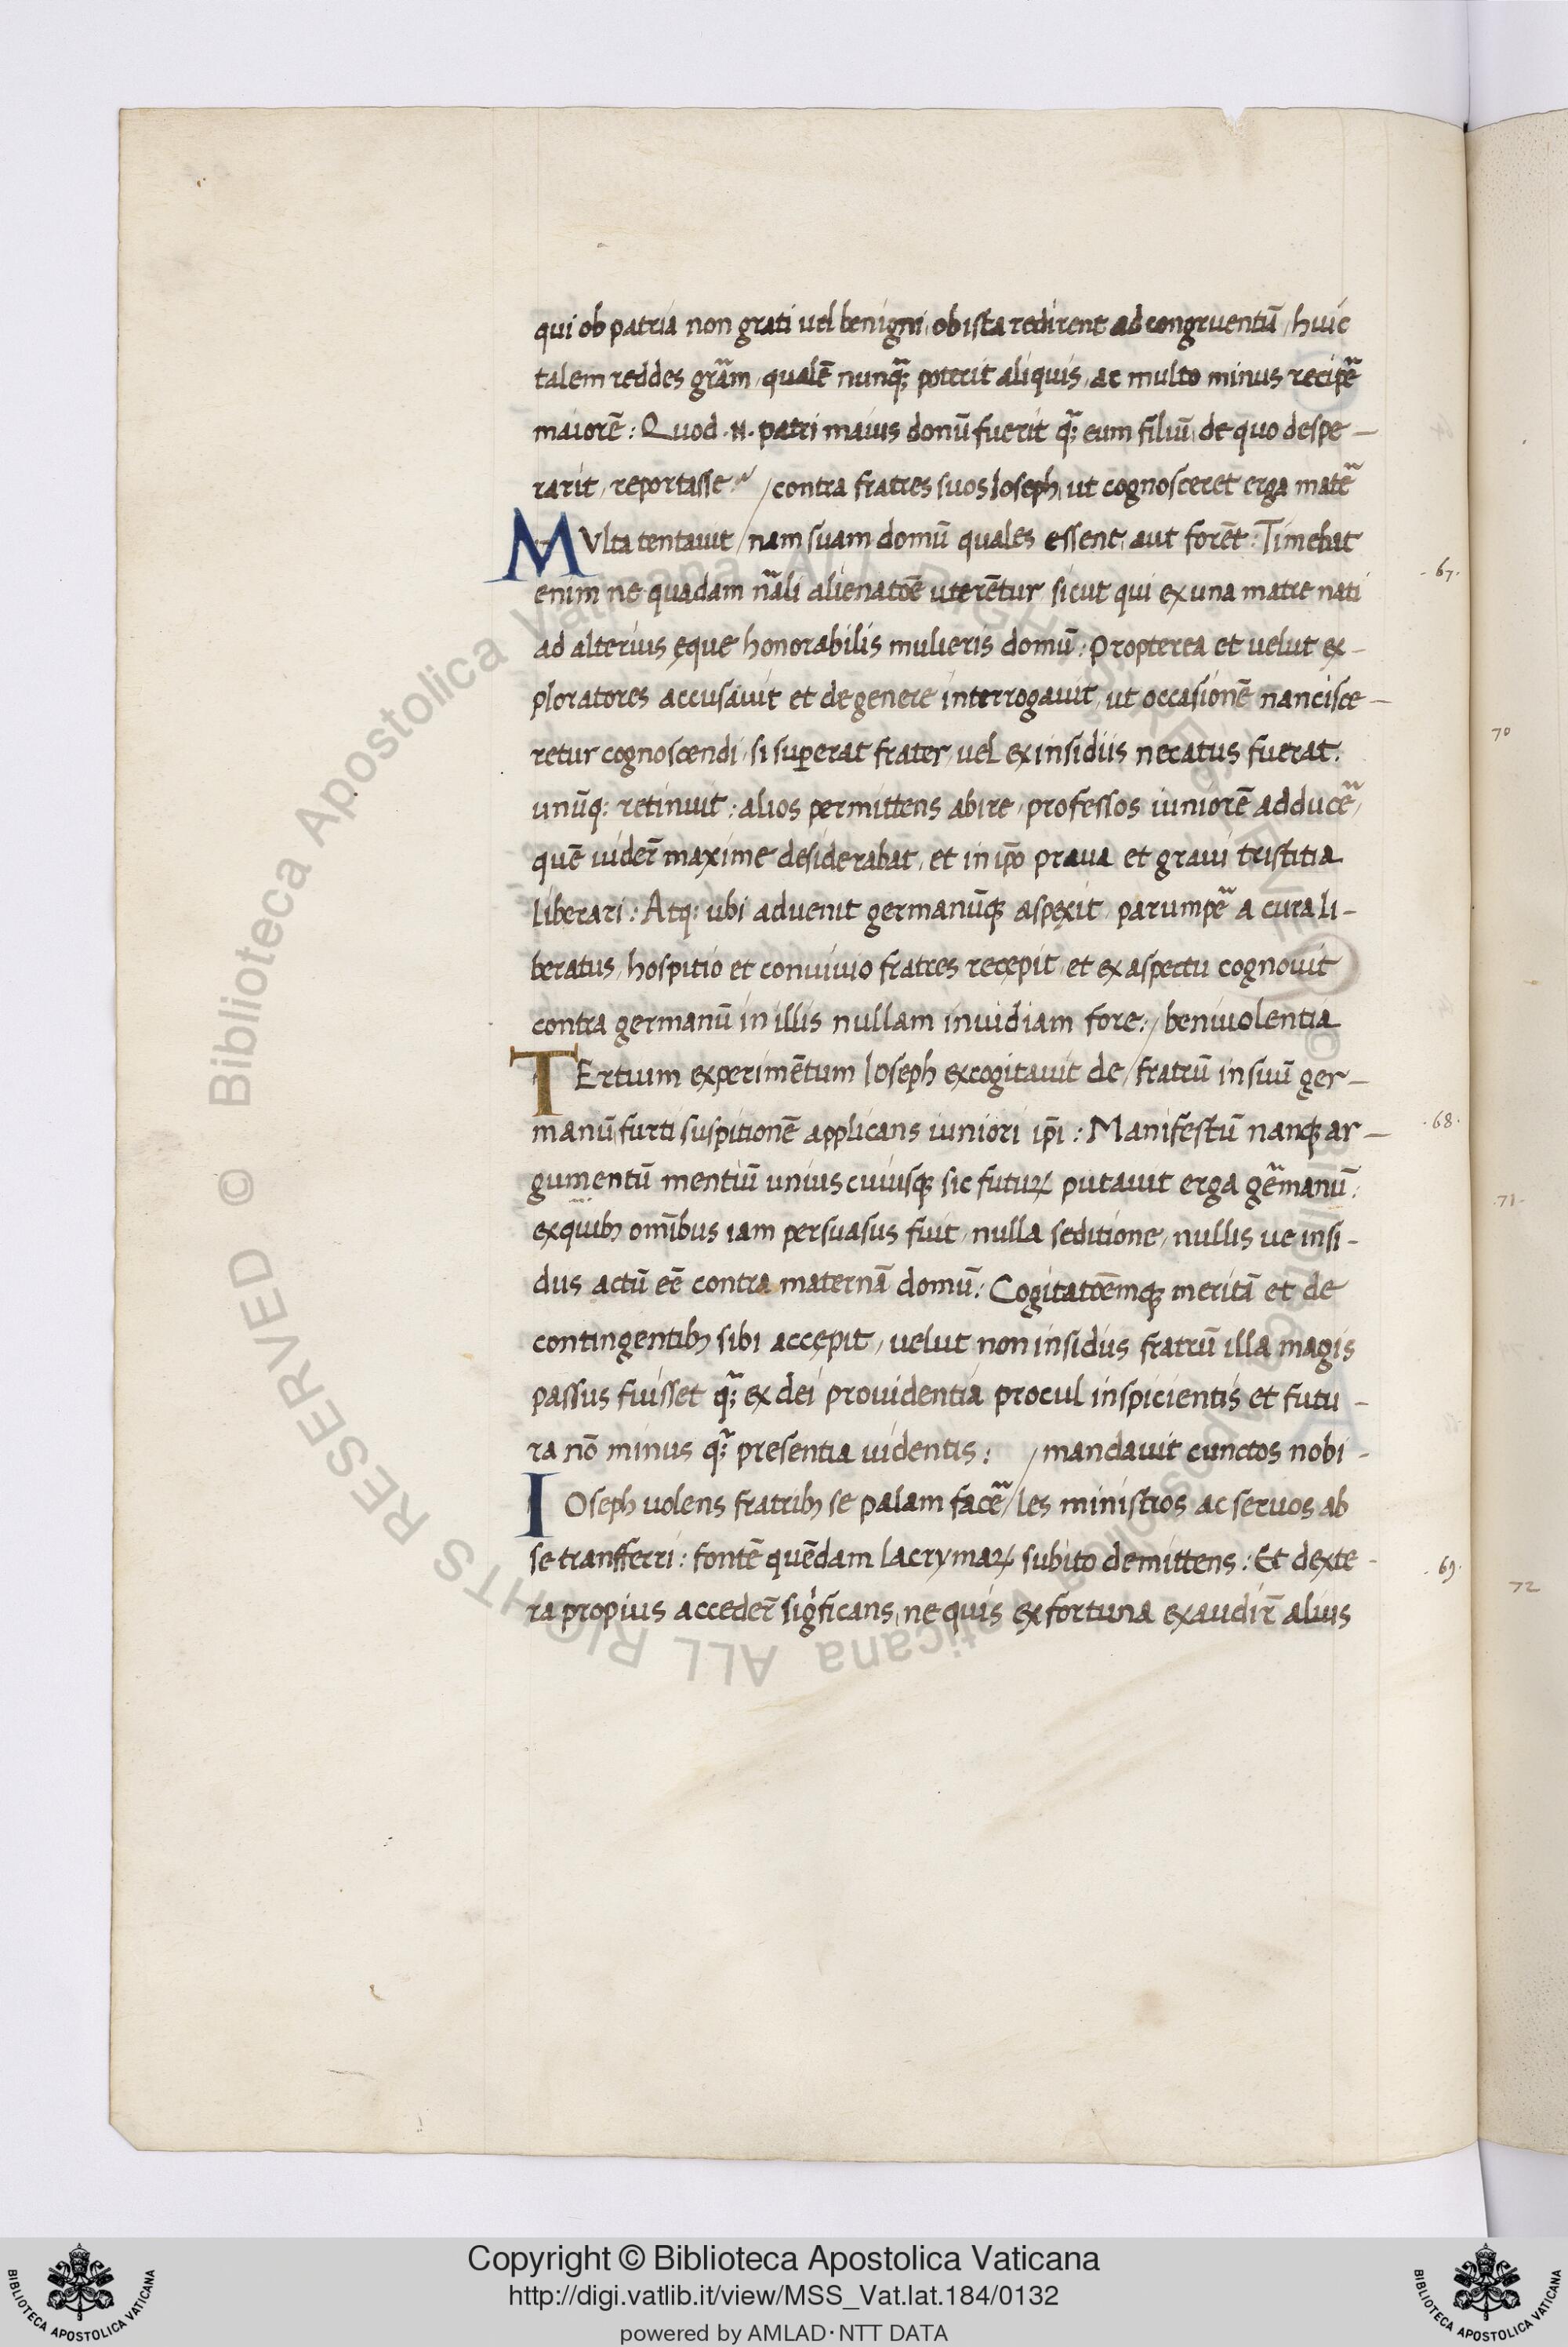 qui ob patria non grati uel benigni, ob ista redirent ad congruentiū, huic
talem reddes grãm, qualē nunq̃; poterit aliquis, ac multo minus recipẽ
maiorē: Quod .N. patri maius donū fuerit q̃; eum filiū, de quo despe-
rarit, reportasse? / contra fratres suos Ioseph, ut cognosceret erga matẽ
MVlta tentauit / nam suam domū quales essent, aut forēt: Timebat
enim ne quadam nãli alienatōe uterētur sicut qui ex una matre nati
ad alterius ęque honorabilis mulieris domū: Propterea et uelut ex-
ploratores accusauit et de genere interrogauit, ut occasionē nancisce-
retur cognoscendi, si supererat frater, uel ex insidiis necatus fuerat:
unūq: retinuit: alios permittens abire, professos iuniorē adducẽ,
quē uider̃ maxime desiderabat, et in ip̄o praua et graui tristitia
liberari: Atq: ubi aduenit germanūq; aspexit, parumpẽ a cura li-
beratus, hospitio et conuiuio fratres recepit, et ex aspectu cognouit
contra germanū in illis nullam inuidiam fore: / beniuolentia
TErtium experimētum Ioseph excogitauit de / fratrū in suū ger-
manū, furti suspitionē applicans iuniori ip̄i: Manifestū nanq; ar-
gumentū mentiū unius cuiusq; sic futuꝝ putauit erga gẽmanū:
ex quibꝫ om̄ibus iam persuasus fuit, nulla seditione, nullis ue insi-
diis actū eē contra maternā domū: Cogitatōemq; meritā et de
contingentibꝫ sibi accępit, uelut non insidiis fratrū illa magis
passus fuisset q̃; ex dei prouidentia procul inspicientis et futu-
ra nō minus q̃; presentia uidentis: / mandauit cunctos nobi-
IOseph uolens fratribꝫ se palam facẽ / les ministros ac seruos ab
se transferri: fontē quēdam lacrymaꝝ subito demittens: Et dexte-
ra propius acceder̃ sigͥficans, ne quis ex fortuna exaudir̃ alius
.67.
70
.68.
.71.
.69.
72
© Biblioteca Apostolica Vaticana ALL RIGHTS RESERVED
Copyright © Biblioteca Apostolica Vaticana
http://digi.vatlib.it/view/MSS_Vat.lat.184/0132
powered by AMLAD·NTT DATA
BIBLIOTECA APOSTOLICA VATICANA
BIBLIOTECA APOSTOLICA VATICANA